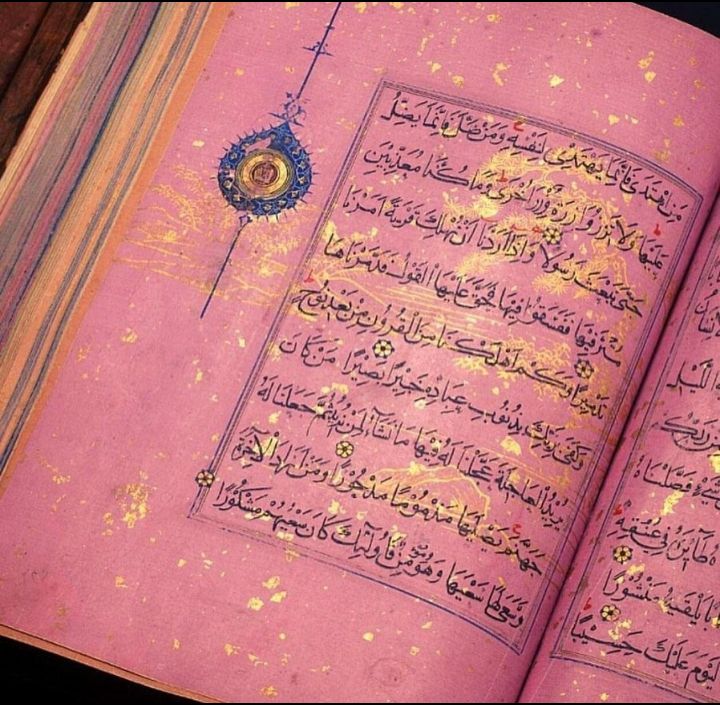 الَّيْلِ
رَبِّكُمْ
فَصَّلْنَاهُ
طَائِرَهُ فِي عُنُقِهِ
يَلْقَيهُ مَنْشُورًا
الْيَوْمَ عَلَيْكَ حَسِيبًا
مَنِ اهْتَدَى فَإِنَّمَا يَهْتَدِي لِنَفْسِهِ وَمَنْ ضَلَّ فَإِنَّمَا يَضِلُّ
عَلَيْهَا وَلَا تَزِرُ وَازِرَةٌ وِزْرَ أُخْرَى وَمَا كُنَّا مُعَذِّبِينَ
حَتَّى نَبْعَثَ رَسُولًا وَإِذَا أَرَدْنَا أَنْ نُهْلِكَ قَرْيَةً أَمَرْنَا
مُتْرَفِيهَا فَفَسَقُوا فِيهَا فَحَقَّ عَلَيْهَا الْقَوْلُ فَدَمَّرْنَاهَا
تَدْمِيرًا وَكَمْ أَهْلَكْنَا مِنَ الْقُرُونِ مِنْ بَعْدِ نُوحٍ
وَكَفَى بِرَبِّكَ بِذُنُوبِ عِبَادِهِ خَبِيرًا بَصِيرًا مَنْ كَانَ
يُرِيدُ الْعَاجِلَةَ عَجَّلْنَا لَهُ فِيهَا مَا نَشَاءُ لِمَنْ نُرِيدُ ثُمَّ جَعَلْنَا لَهُ
جَهَنَّمَ يَصْلَيهَا مَذْمُومًا مَدْحُورًا وَمَنْ أَرَادَ الْآخِرَةَ
وَسَعَى لَهَا سَعْيَهَا وَهُوَ مُؤْمِنٌ فَأُولَئِكَ كَانَ سَعْيُهُمْ مَشْكُورًا